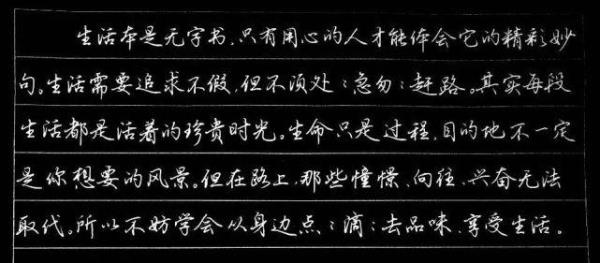 生活本是无字书,只有用心的人才能体会它的精彩妙
句。生活需要追求不假,但不须处:忽勿:赶路。其实每段
生活都是活着的珍贵时光。生命只是过程,目的地不一定
是你想要的风景。但在路上,那些憧憬、向往、兴奋无法
取代。所以不妨学会从身边点:滴:去品味、享受生活。